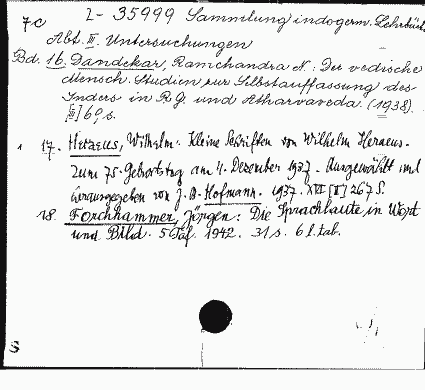 7c 2-35999 Sammlung indogerm. Lehrbüch.
Abt. III. Untersuchungen
Bd. 16. Dandekar, Ramchandra N.: Der vedische
Mensch. Studien zur Selbstauffassung des
Inders in RG. und Atharvaveda. (1938).
69 s.
17. Heraeus, Wilhelm: Kleine Schriften von Wilhelm Heraeus.
Zum 75. Geburtstag am 4. Dezember 1937. Ausgewählt und
herausgegeben von J. B. Hofmann. 1937. XVI 267 S.
18. Forchhammer, Jörgen: Die Sprachlaute in Wort
und Bild. 5 Taf. 1942. 31 s. 6 l. tab.
S